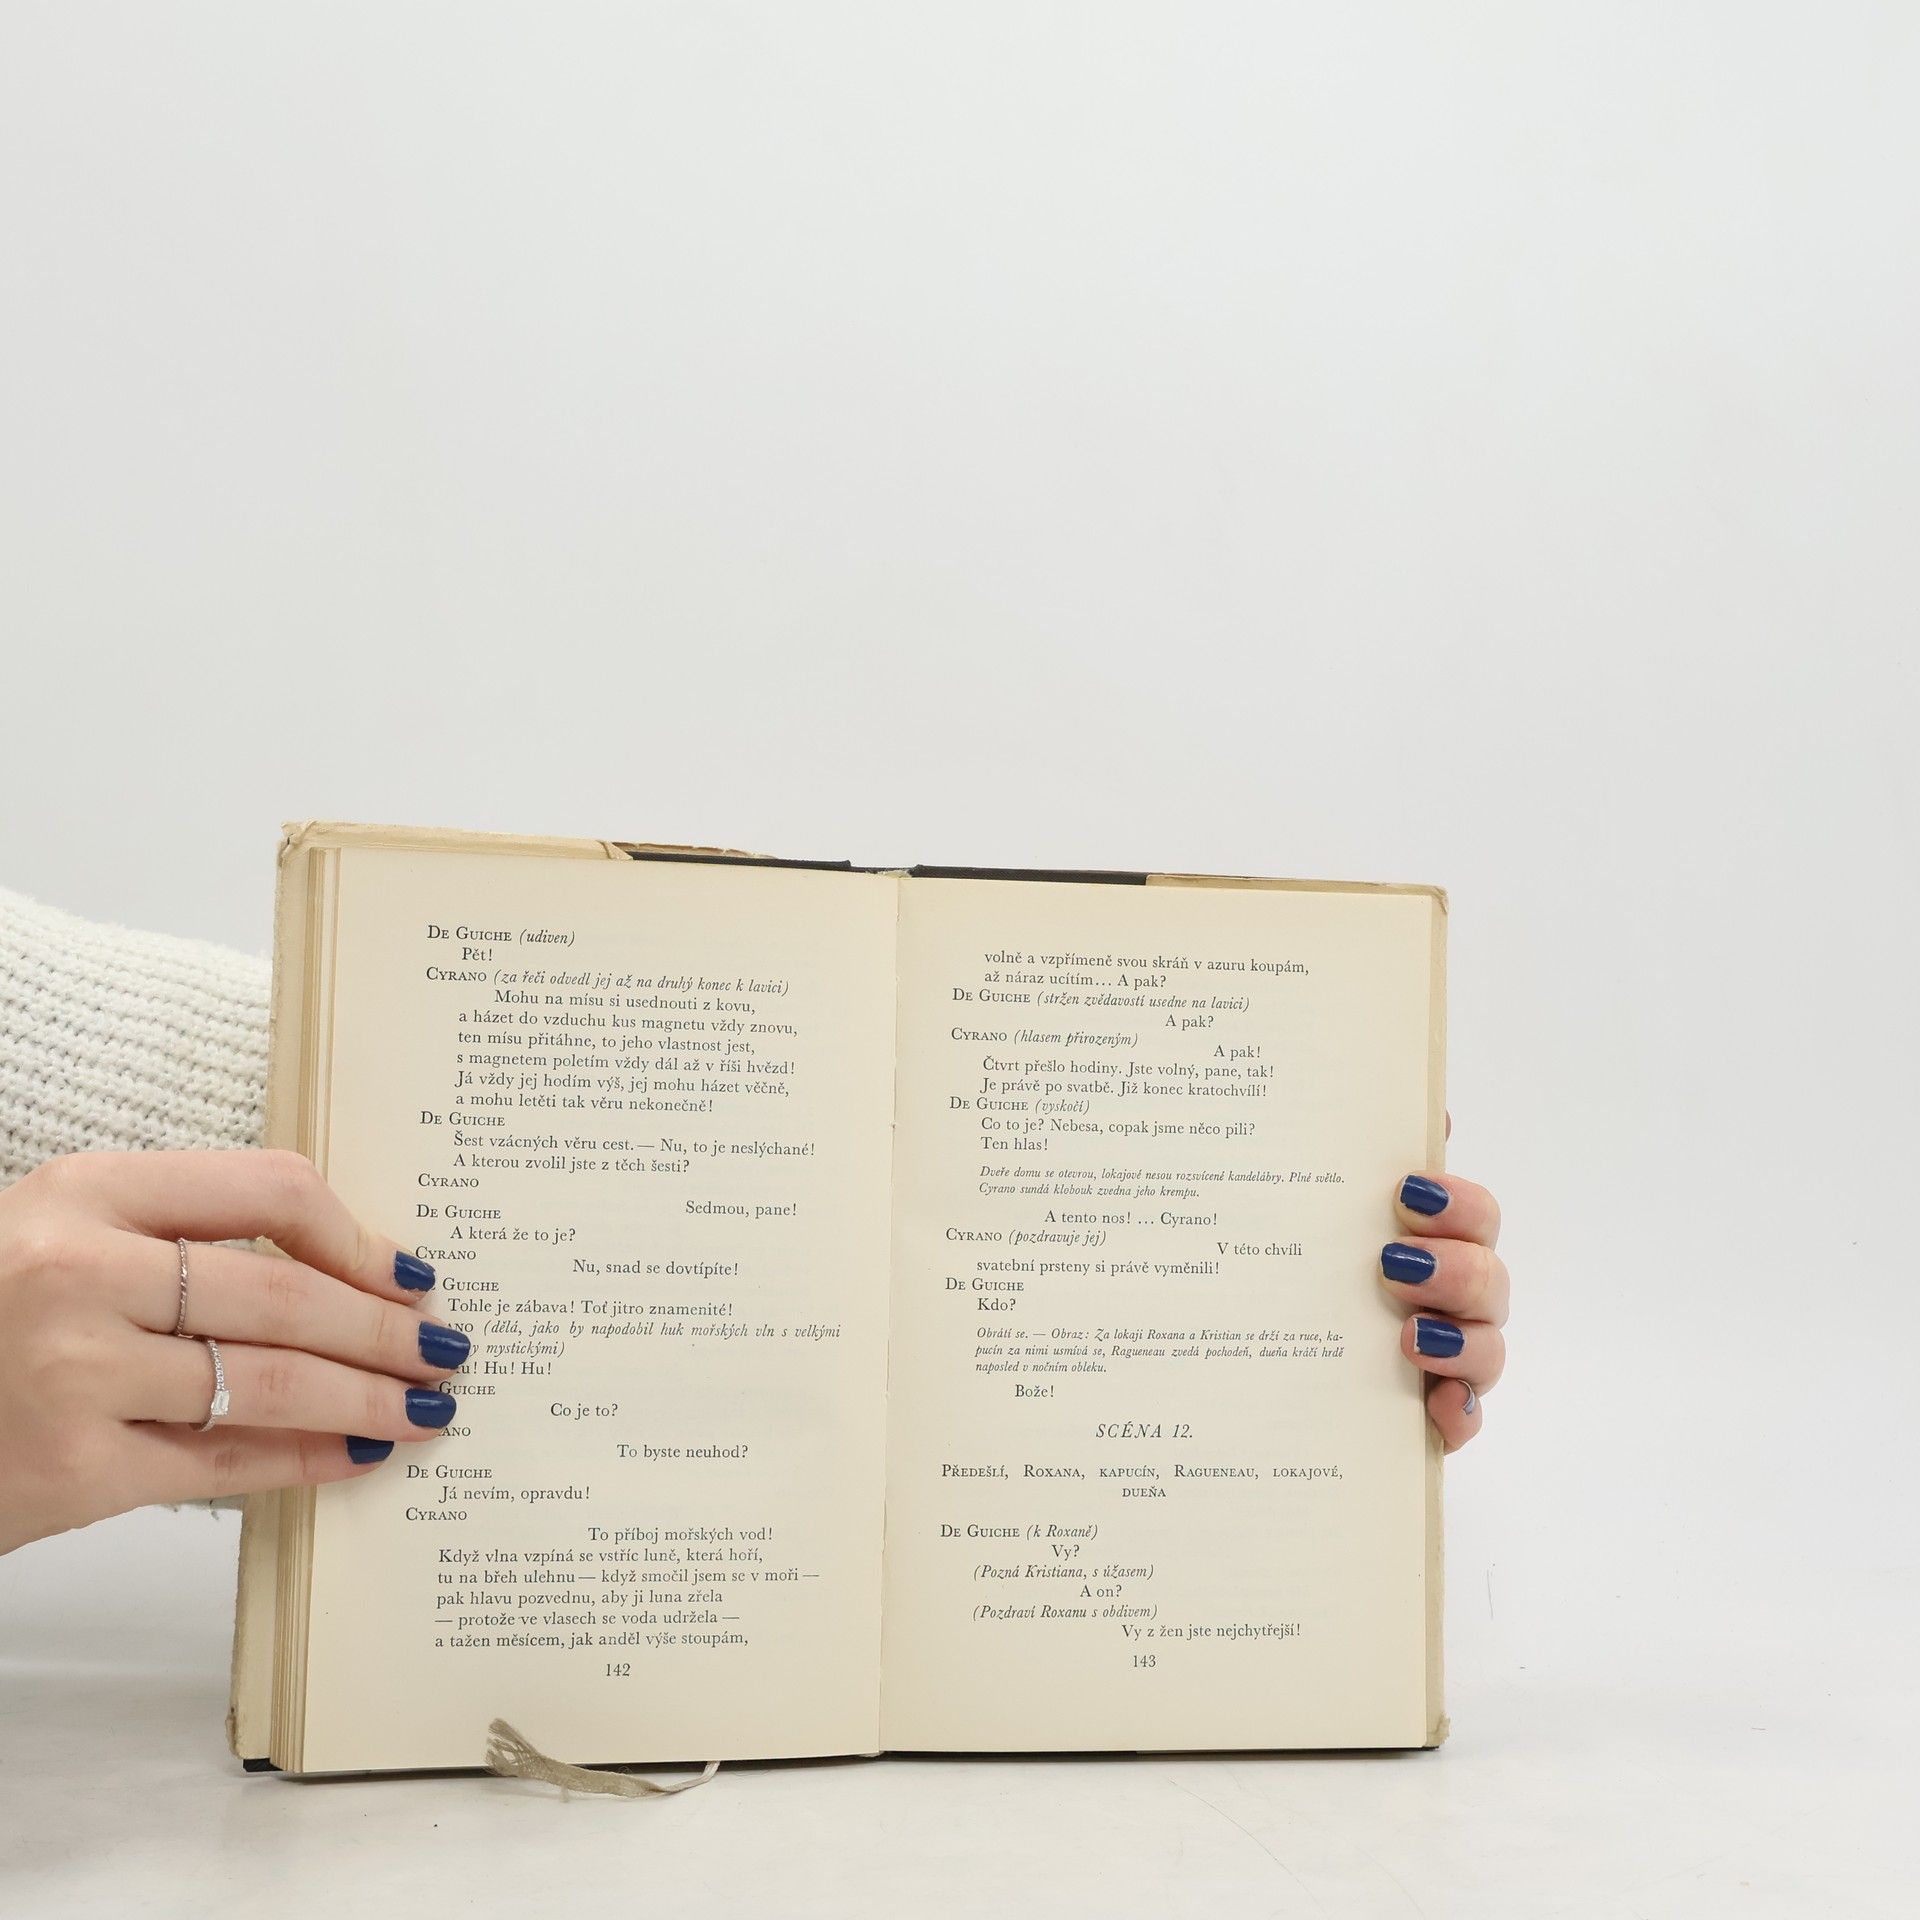 DE GUICHE (udiven)
Pět!
CYRANO (za řeči odvedl jej až na druhý konec k lavici)
Mohu na mísu si usednouti z kovu,
a házet do vzduchu kus magnetu vždy znovu,
ten mísu přitáhne, to jeho vlastnost jest,
s magnetem poletím vždy dál až v říši hvězd!
Já vždy jej hodím výš, jej mohu házet věčně,
a mohu letěti tak věru nekonečně!
DE GUICHE
Šest vzácných věru cest. — Nu, to je neslýchané!
A kterou zvolil jste z těch šesti?
CYRANO
Sedmou, pane!
DE GUICHE
A která že to je?
CYRANO
Nu, snad se dovtípíte!
GUICHE
Tohle je zábava! Toť jitro znamenité!
ANO (dělá, jako by napodobil huk mořských vln s velkými
y mystickými)
u! Hu! Hu!
GUICHE
Co je to?
ANO
To byste neuhod?
DE GUICHE
Já nevím, opravdu!
CYRANO
To příboj mořských vod!
Když vlna vzpíná se vstříc luně, která hoří,
tu na břeh ulehnu — když smočil jsem se v moři —
pak hlavu pozvednu, aby ji luna zřela
— protože ve vlasech se voda udržela —
a tažen měsícem, jak anděl výše stoupám,
142
volně a vzpřímeně svou skráň v azuru koupám,
až náraz ucítím... A pak?
DE GUICHE (stržen zvědavostí usedne na lavici)
A pak?
CYRANO (hlasem přirozeným)
A pak!
Čtvrt přešlo hodiny. Jste volný, pane, tak!
Je právě po svatbě. Již konec kratochvílí!
DE GUICHE (vyskočí)
Co to je? Nebesa, copak jsme něco pili?
Ten hlas!
Dveře domu se otevrou, lokajové nesou rozsvícené kandelábry. Plné světlo.
Cyrano sundá klobouk zvedna jeho krempu.
A tento nos! ... Cyrano!
CYRANO (pozdravuje jej)
V této chvíli
svatební prsteny si právě vyměnili!
DE GUICHE
Kdo?
Obrátí se. — Obraz: Za lokaji Roxana a Kristian se drží za ruce, ka-
pucín za nimi usmívá se, Ragueneau zvedá pochodeň, dueňa kráčí hrdě
naposled v nočním obleku.
Bože!
SCÉNA 12.
PŘEDEŠLÍ, ROXANA, KAPUCÍN, RAGUENEAU, LOKAJOVÉ,
DUEŇA
DE GUICHE (k Roxaně)
Vy?
(Pozná Kristiana, s úžasem)
A on?
(Pozdraví Roxanu s obdivem)
Vy z žen jste nejchytřejší!
143